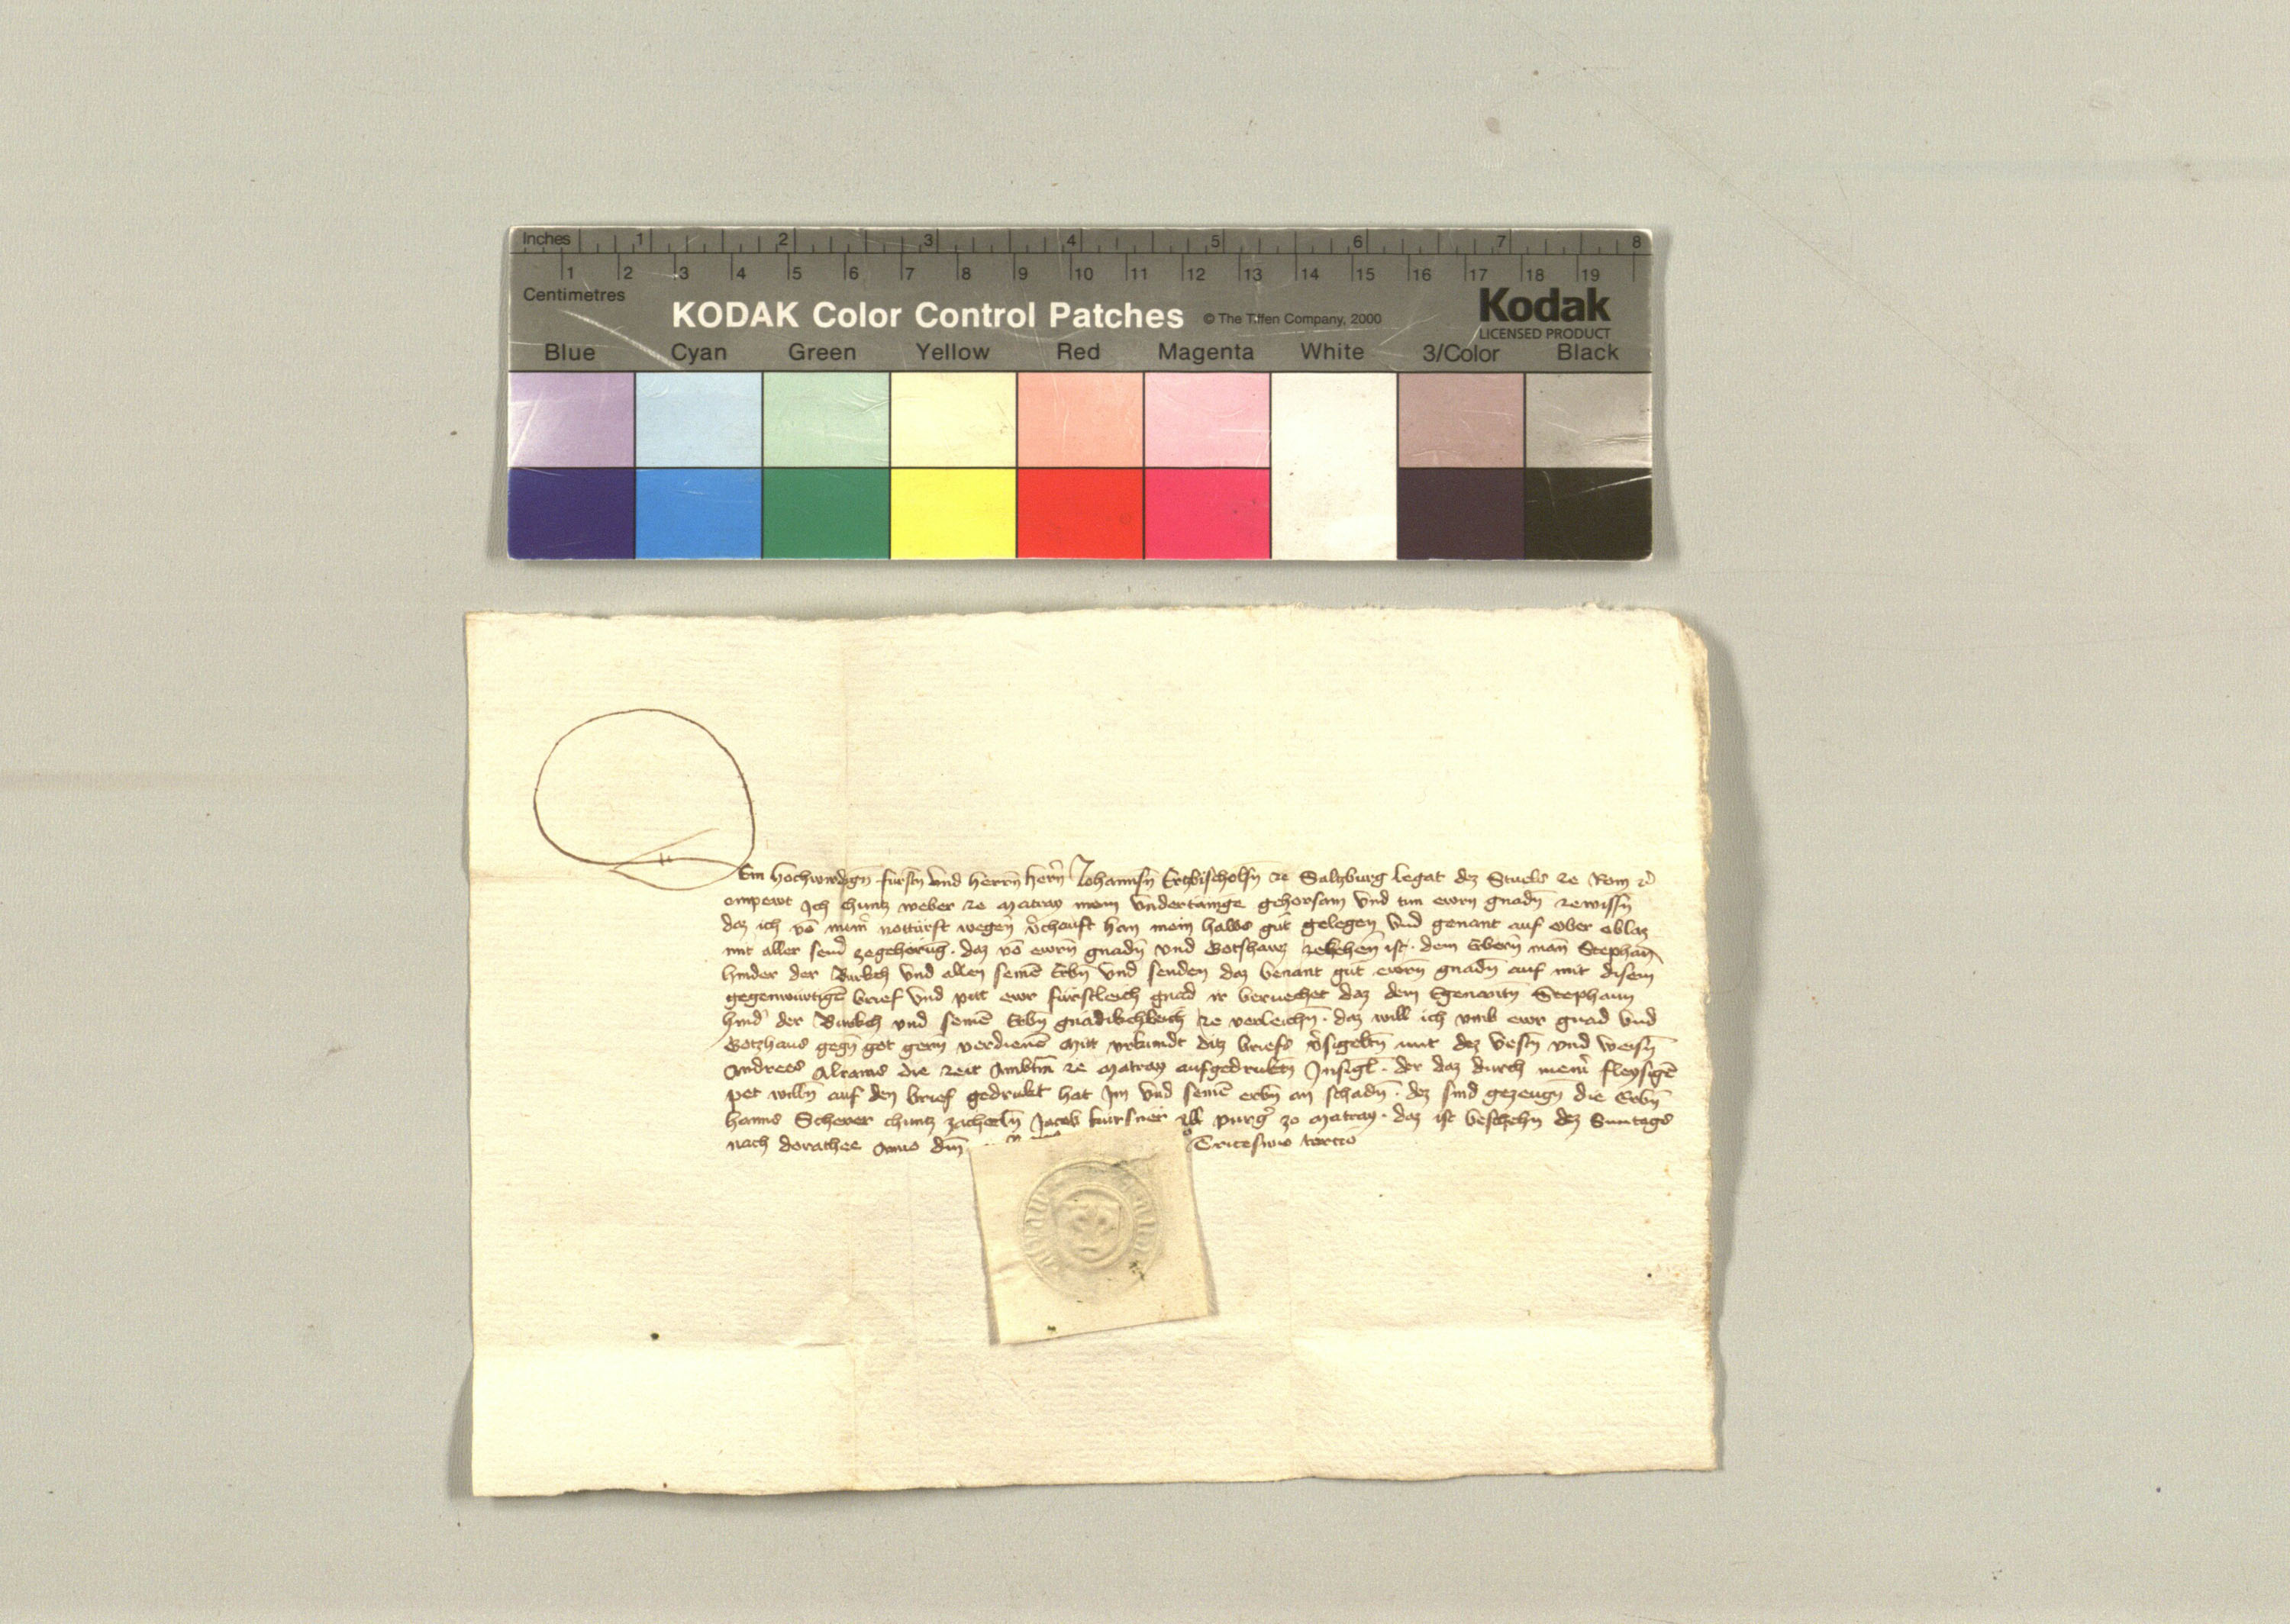 Inches 1 2 3 4 5 6 7 8
1 2 3 4 5 6 7 8 9 10 11 12 13 14 15 16 17 18 19
Centimetres
KODAK Color Control Patches © The Tiffen Company, 2000 Kodak
LICENSED PRODUCT
Blue Cyan Green Yellow Red Magenta White 3/Color Black
Em hochwirdign fürstn vnd herrn hern Johannsn Ertzbischolfn ze Saltzburg legat dez Stuels ze Rom
empewt Ich chuntz weber ze Matray mein vndertanige gehorsam vnd tun ewrn gnadn zewissn
daz ich vō meinr notturft wegen vchauft han mein halbs gut gelegen vnd genant auf ober oblaz
mit aller seinr zegehorūg. daz vō ewrn gnadn vnd Gotshawz zelehen ist. dem Erbern man Stephan
hinder der Kirch vnd allen seinē Erbn vnd senden daz benant gut ewrn gnadn auf mit disem
gegenwurtigē brief vnd pitt ewr fürstleich gnad ir beruechet daz dem Egenantn Stephann
hindr der Kirch vnd seinē Erbn gnadikchleich ze verleichn. daz will ich vmb ewr gnad vnd
Gotzhaus gegn got gern verdienē Mit vrkundt ditz briefs vsigeltn mit dez vestn vnd weisn
Andrees Alrams die zeit Ambtm ze Matray aufgedruktn Insigl. der daz durch meinr fleysigē
pet willn auf den brief gedrukt hat Im vnd seinē erbn an schadn. dez sind gezeugn die Erbn
hanns Scherer chuntz zacherln Jacob kürsner all purgr ze Matray. daz ist beschehn dez Suntags
nach dorathee Anno dm Tricesimo tertio